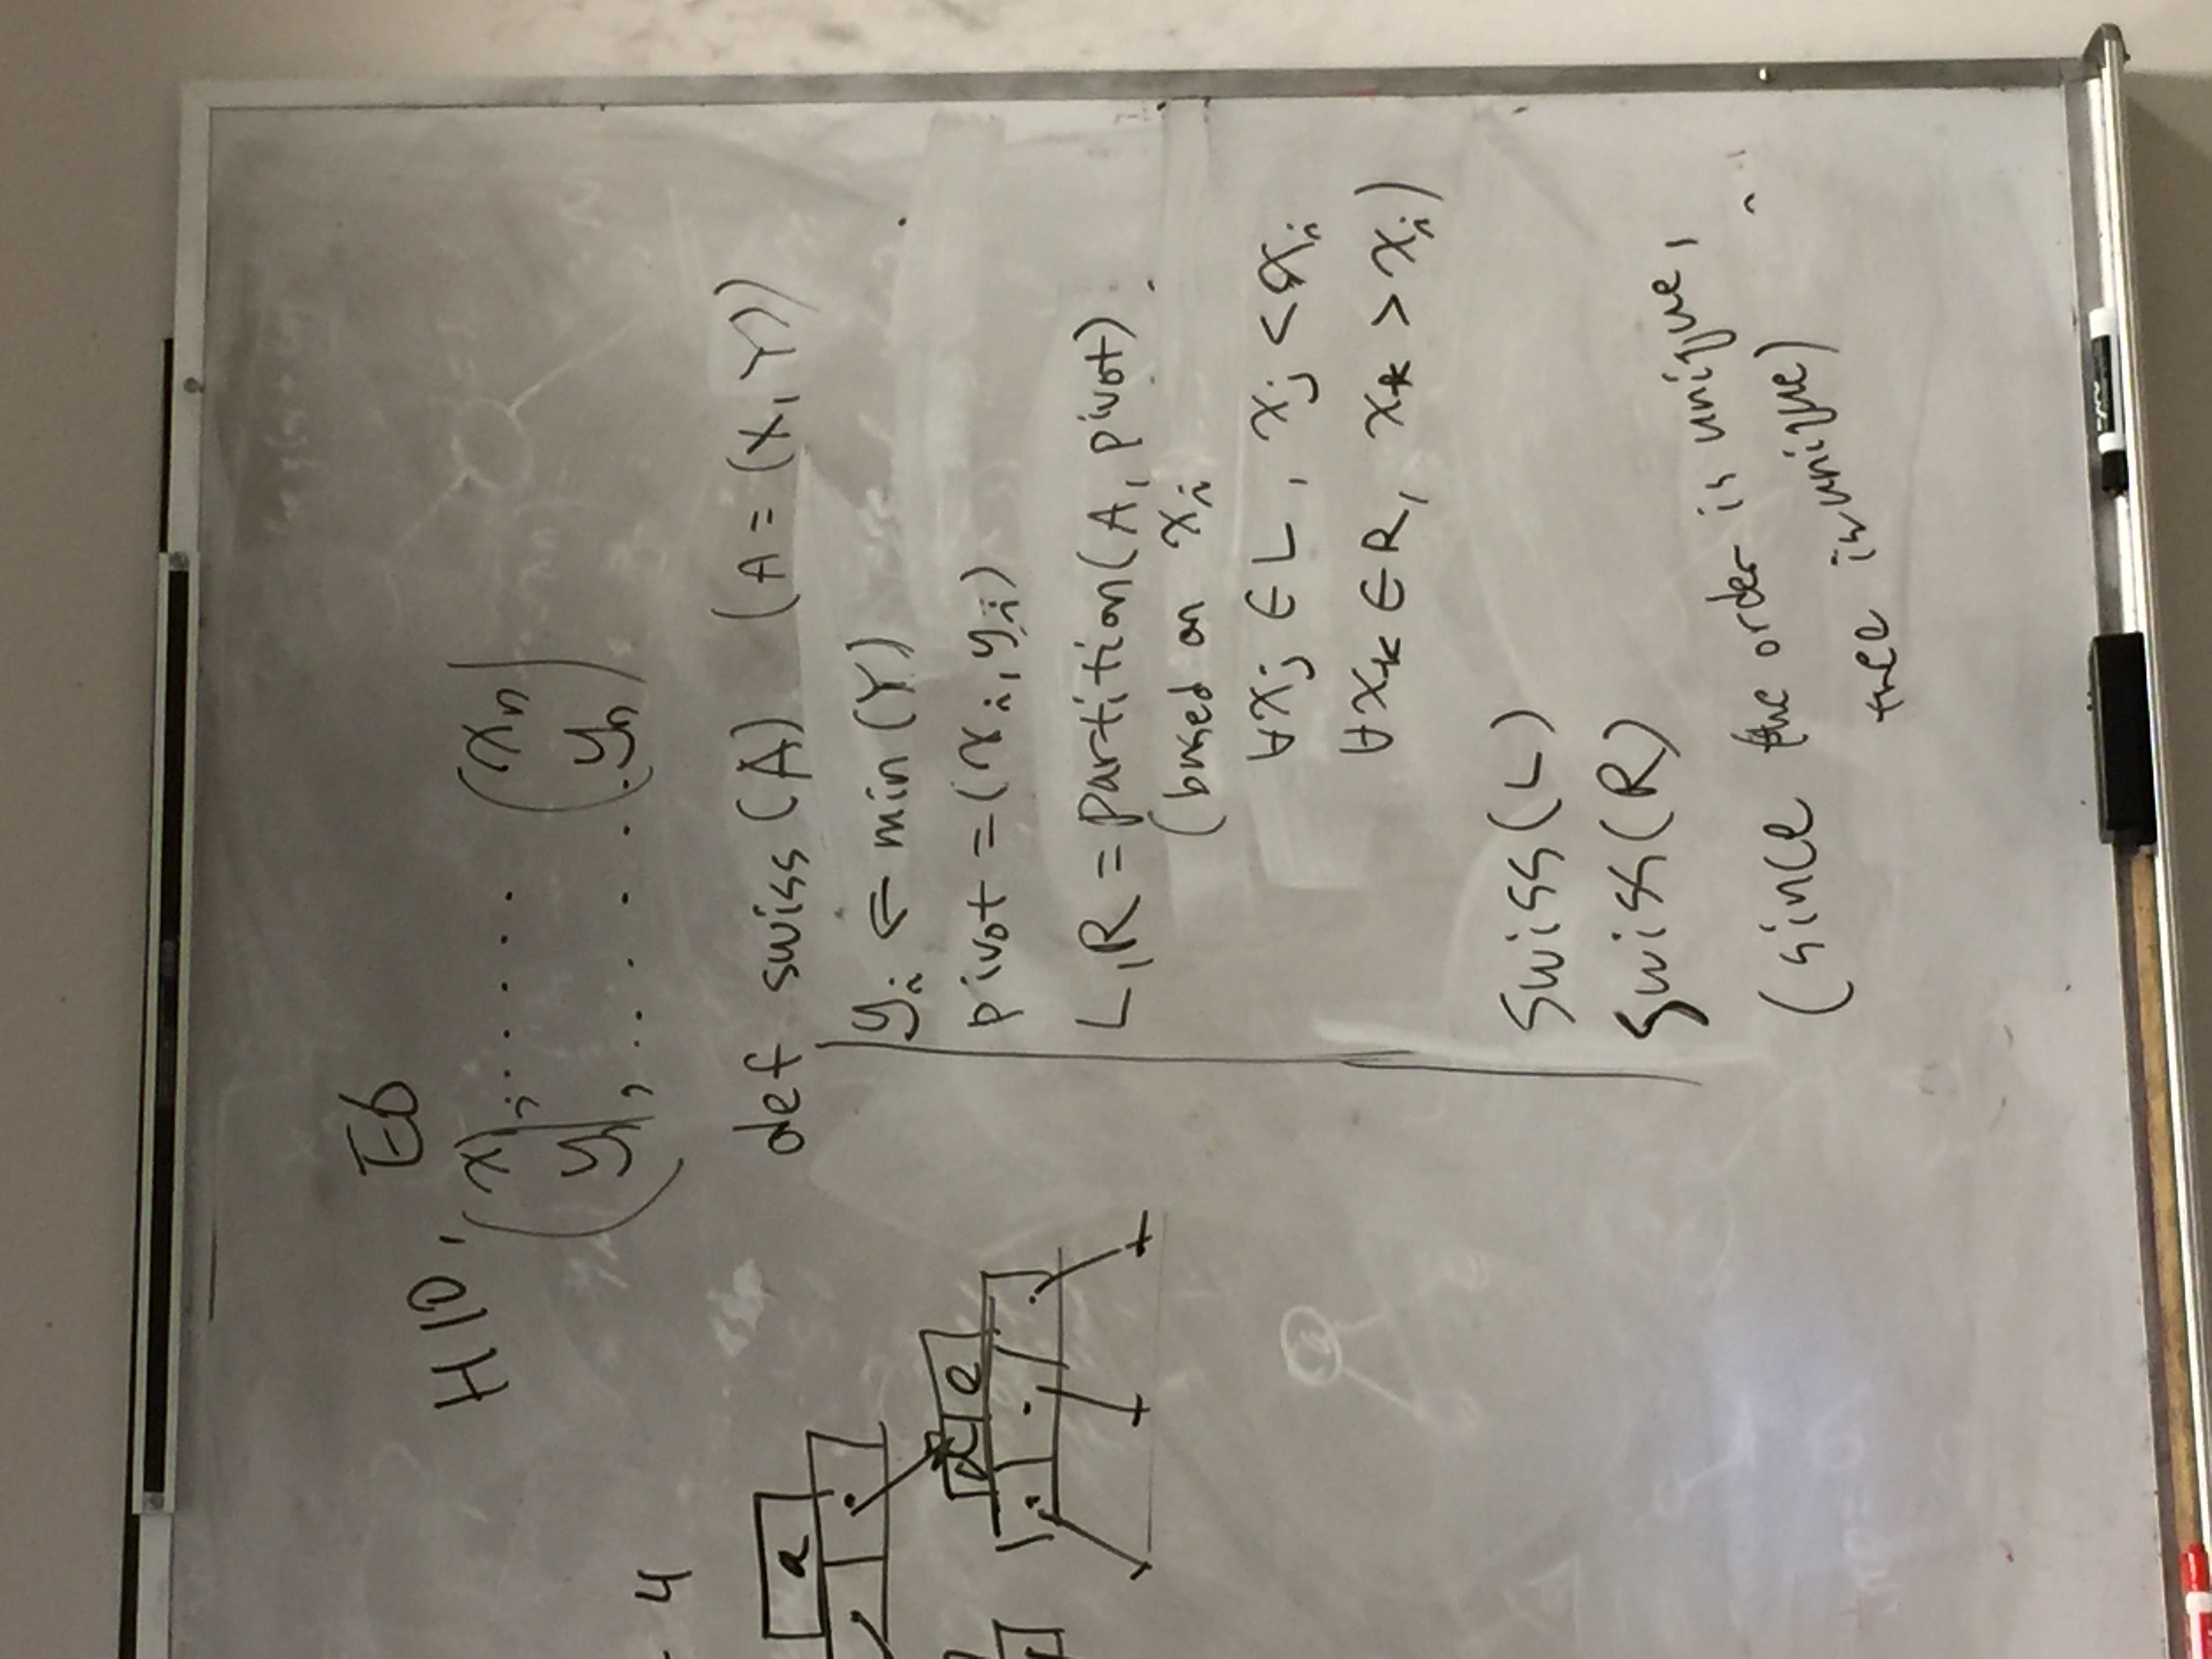 H10, E6
(x₁, ...... (xₙ)
(y₁, ...... yₙ)
- 4
a
d e
def swiss(A) (A = (X, Y))
yᵢ ← min(Y)
pivot = (xᵢ, yᵢ)
L, R = partition(A, pivot)
(based on xᵢ
∀xⱼ ∈ L, xⱼ < xᵢ
∀xₖ ∈ R, xₖ > xᵢ)
swiss(L)
swiss(R)
(since the order is unique,
tree is unique)